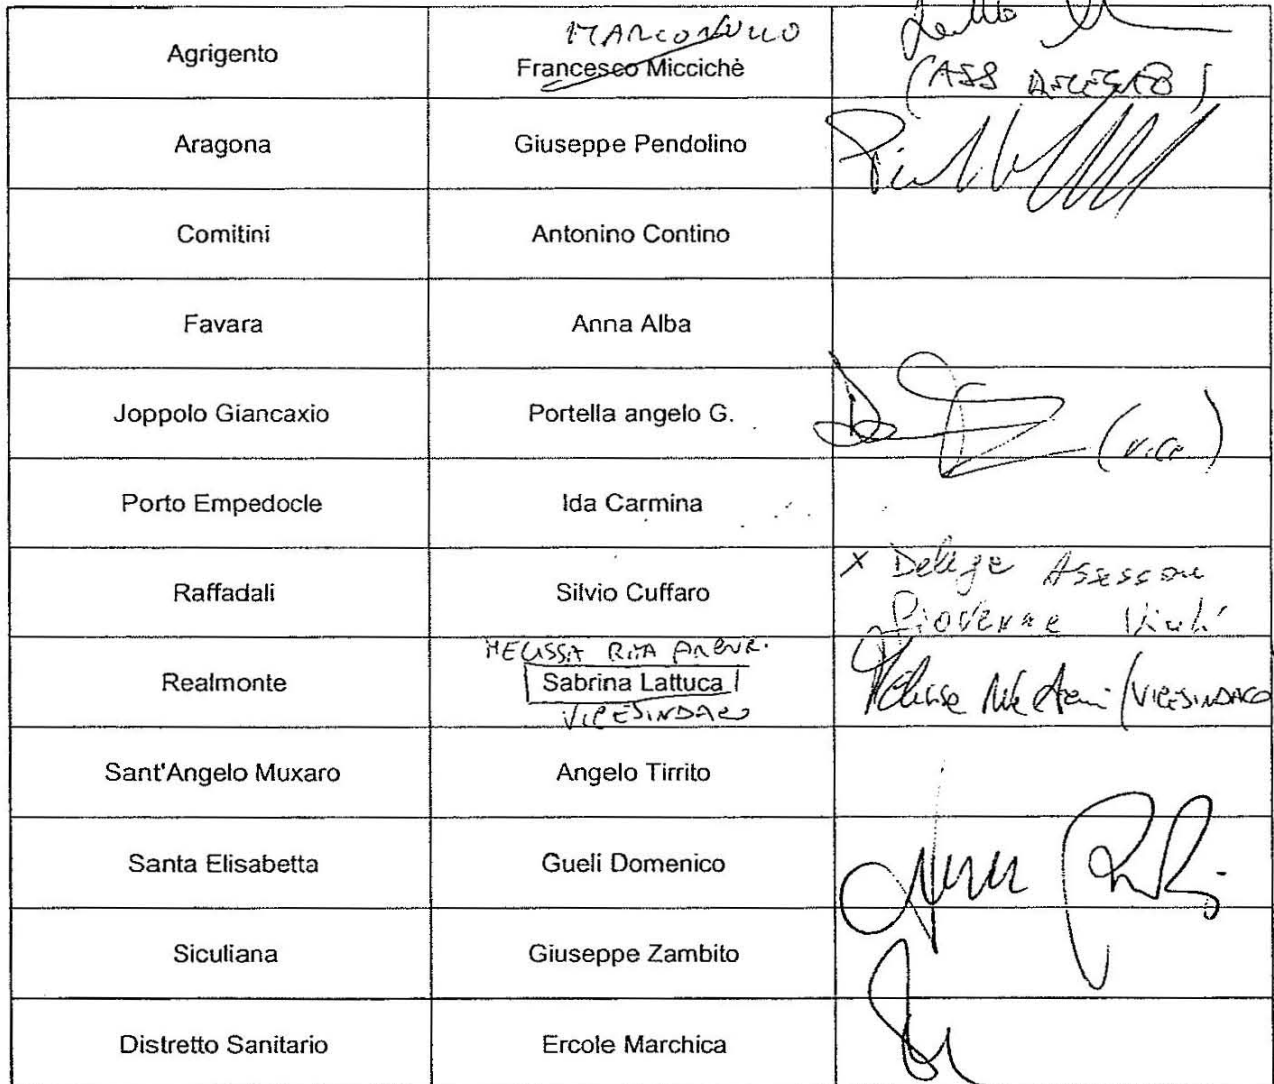 Agrigento
Francesco Miccichè
Aragona
Giuseppe Pendolino
Comitini
Antonino Contino
Favara
Anna Alba
Joppolo Giancaxio
Portella angelo G.
(vice)
Porto Empedocle
Ida Carmina
Raffadali
Silvio Cuffaro
x Delega Assessore
Giovanna
MELISSA RITA
Realmonte
Sabrina Lattuca
VICESINDACO
(VICESINDACO
Sant'Angelo Muxaro
Angelo Tirrito
Santa Elisabetta
Gueli Domenico
Siculiana
Giuseppe Zambito
Distretto Sanitario
Ercole Marchica